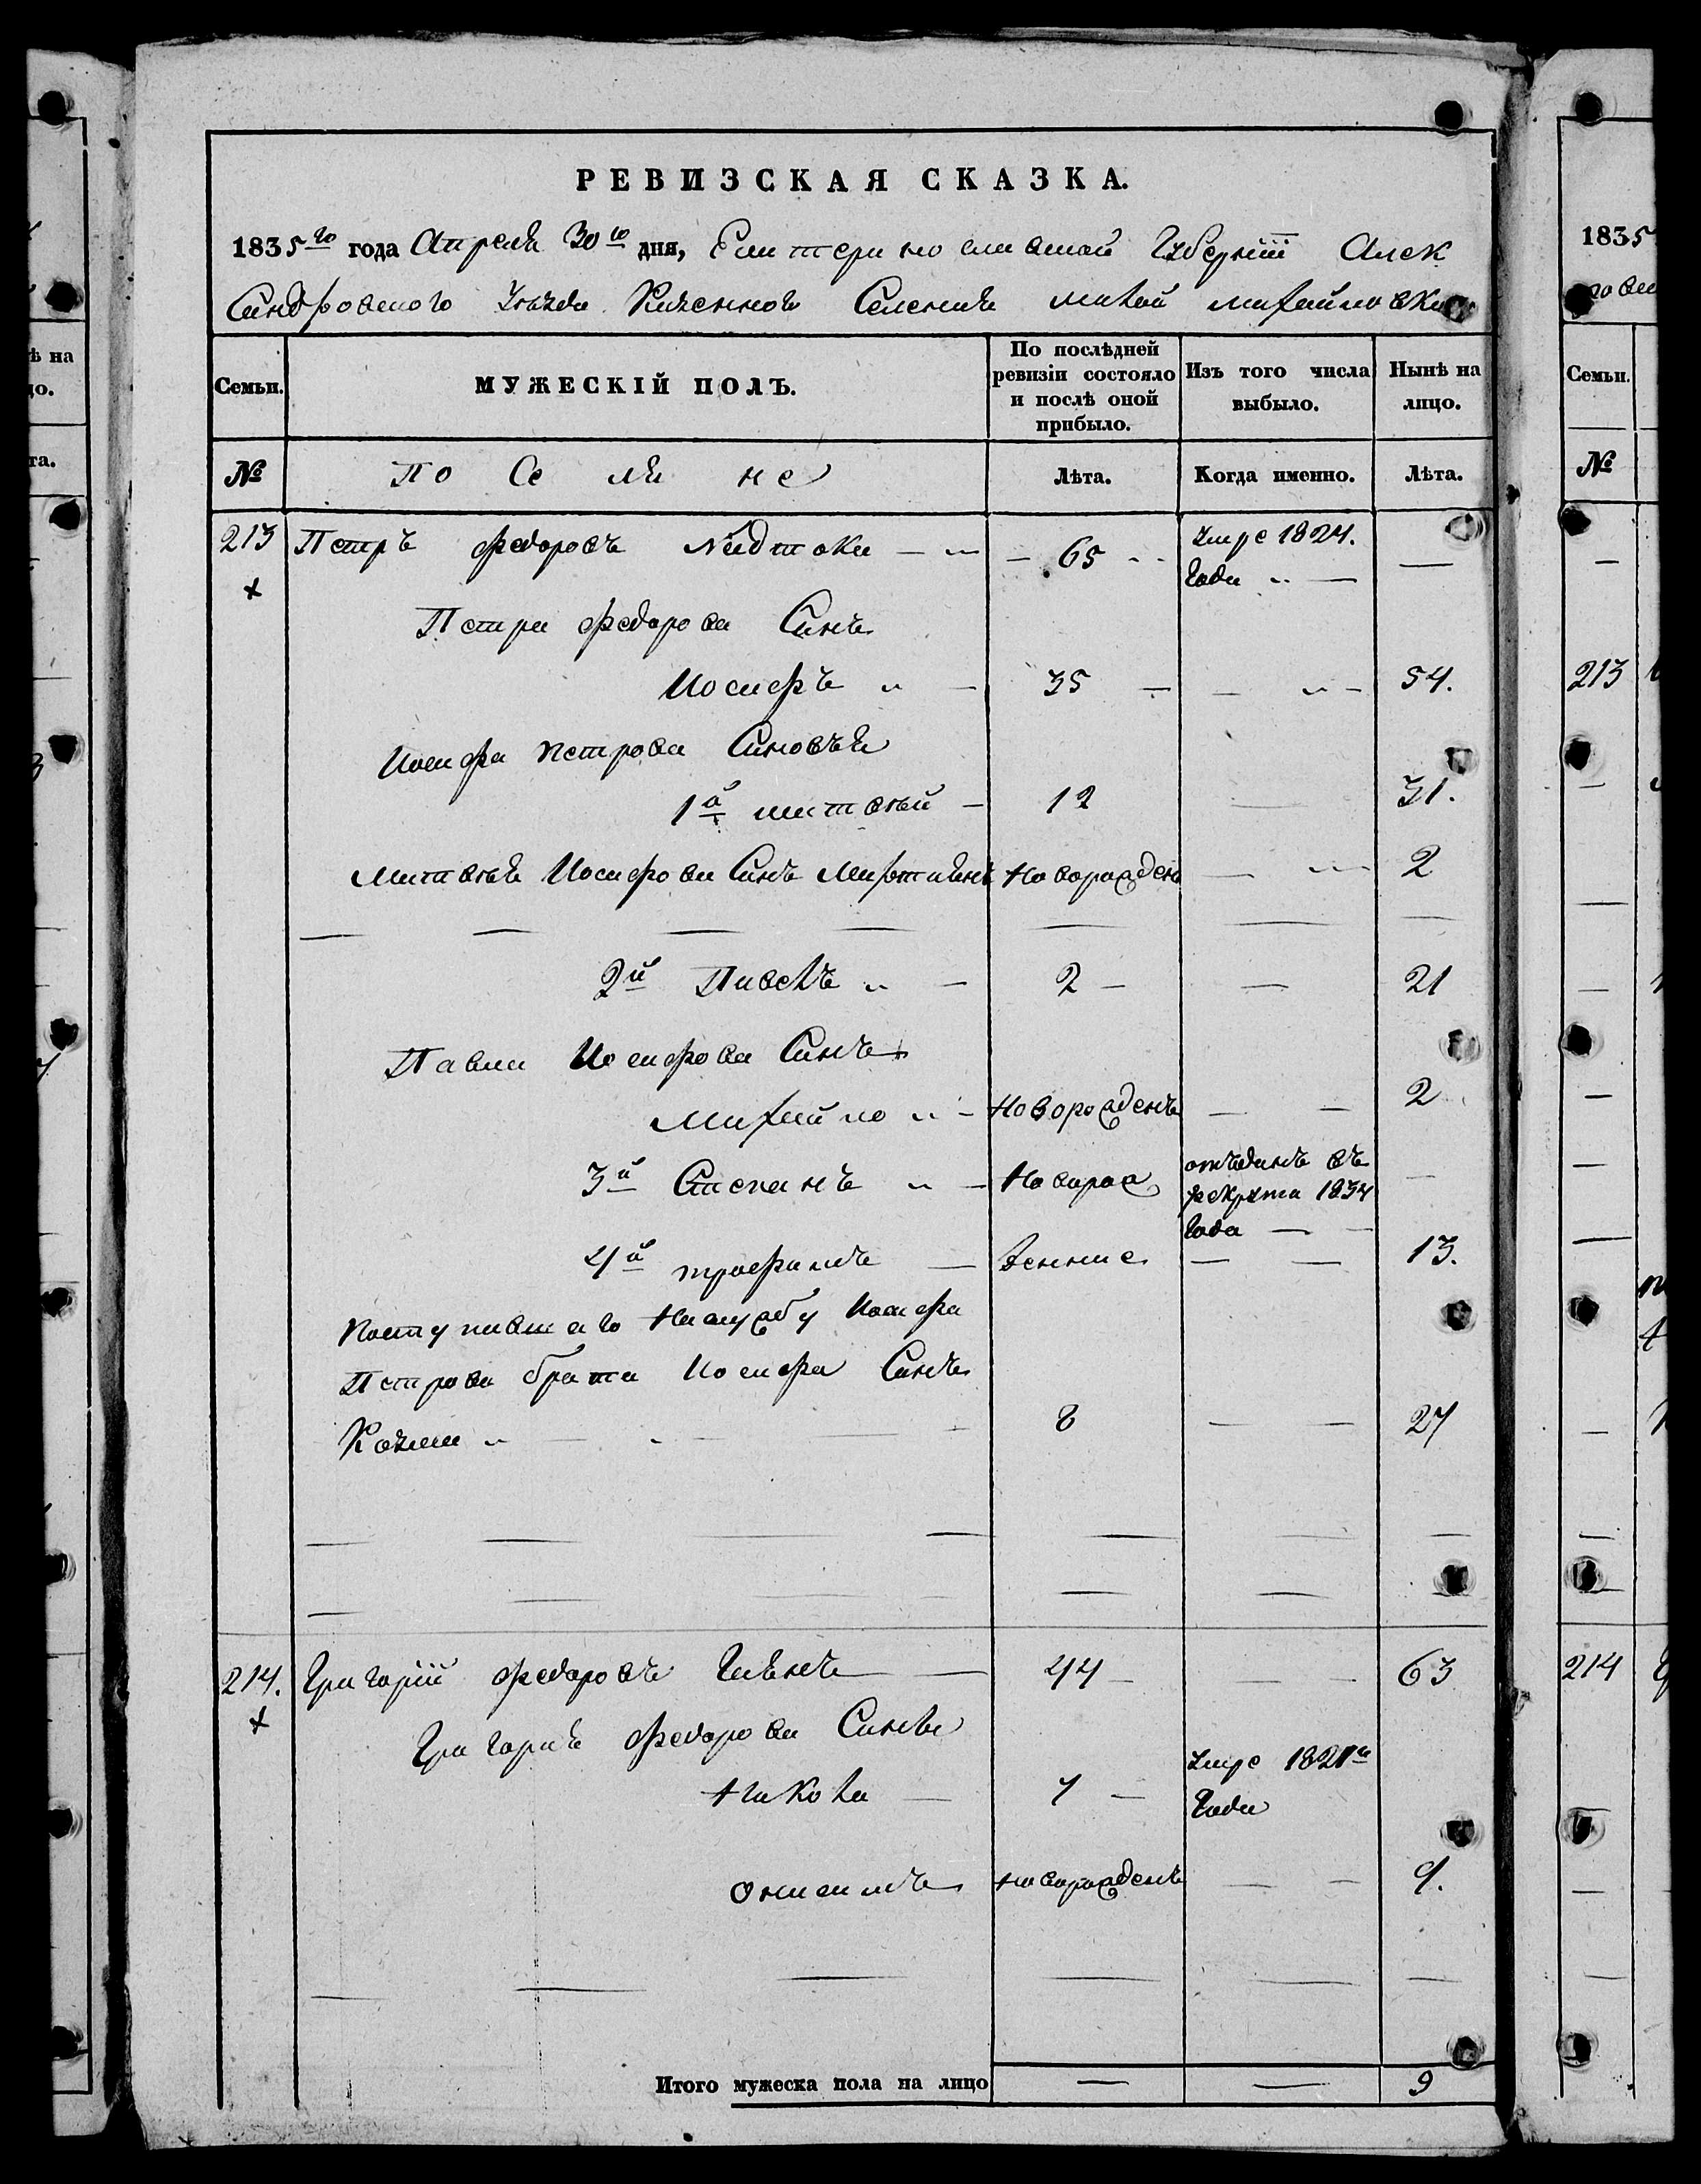 РЕВИЗСКАЯ СКАЗКА.
1835го года Апреля 30го дня, Екатеринославской Губернии Алек
сандровского Уезда Казенного Селения малой михайловки
Семьи. МУЖЕСКІЙ ПОЛЪ. По послѣдней ревизіи состояло и послѣ оной прибыло. Изъ того числа выбыло. Нынѣ на лицо.
№ поселяне Лѣта. Когда именно. Лѣта.
213 Петръ Федоровъ — 65 умре 1824. —
года —
Петра Федорова Синъ
Иосифъ — 35 — — 54.
Иосифа Петрова Синовья
1й матвей — 12 — 31.
Матвея Иосифова Синъ новорожденъ — 2
2й Павелъ — 2 — — 21
Павла Иосифова Синъ
Михайло — новорожденъ — — 2
3й Степанъ — новорож отъданъ въ —
рекрута 1834
года —
4й трофимъ — денние — — 13.
Поступившаго на службу Иосифа
Петрова брата Иосифа Синъ
Козма — 8 — — 27
214. Григорий Федоровъ — 44 — — 63
Григория Федорова Сины
Никола — 7 — умре 1821го
года
онисимъ новорожденъ — — 9.
Итого мужеска пола на лицо — — 9
ѣ на
цо.
та.
1835
Семьи.
№
213
214